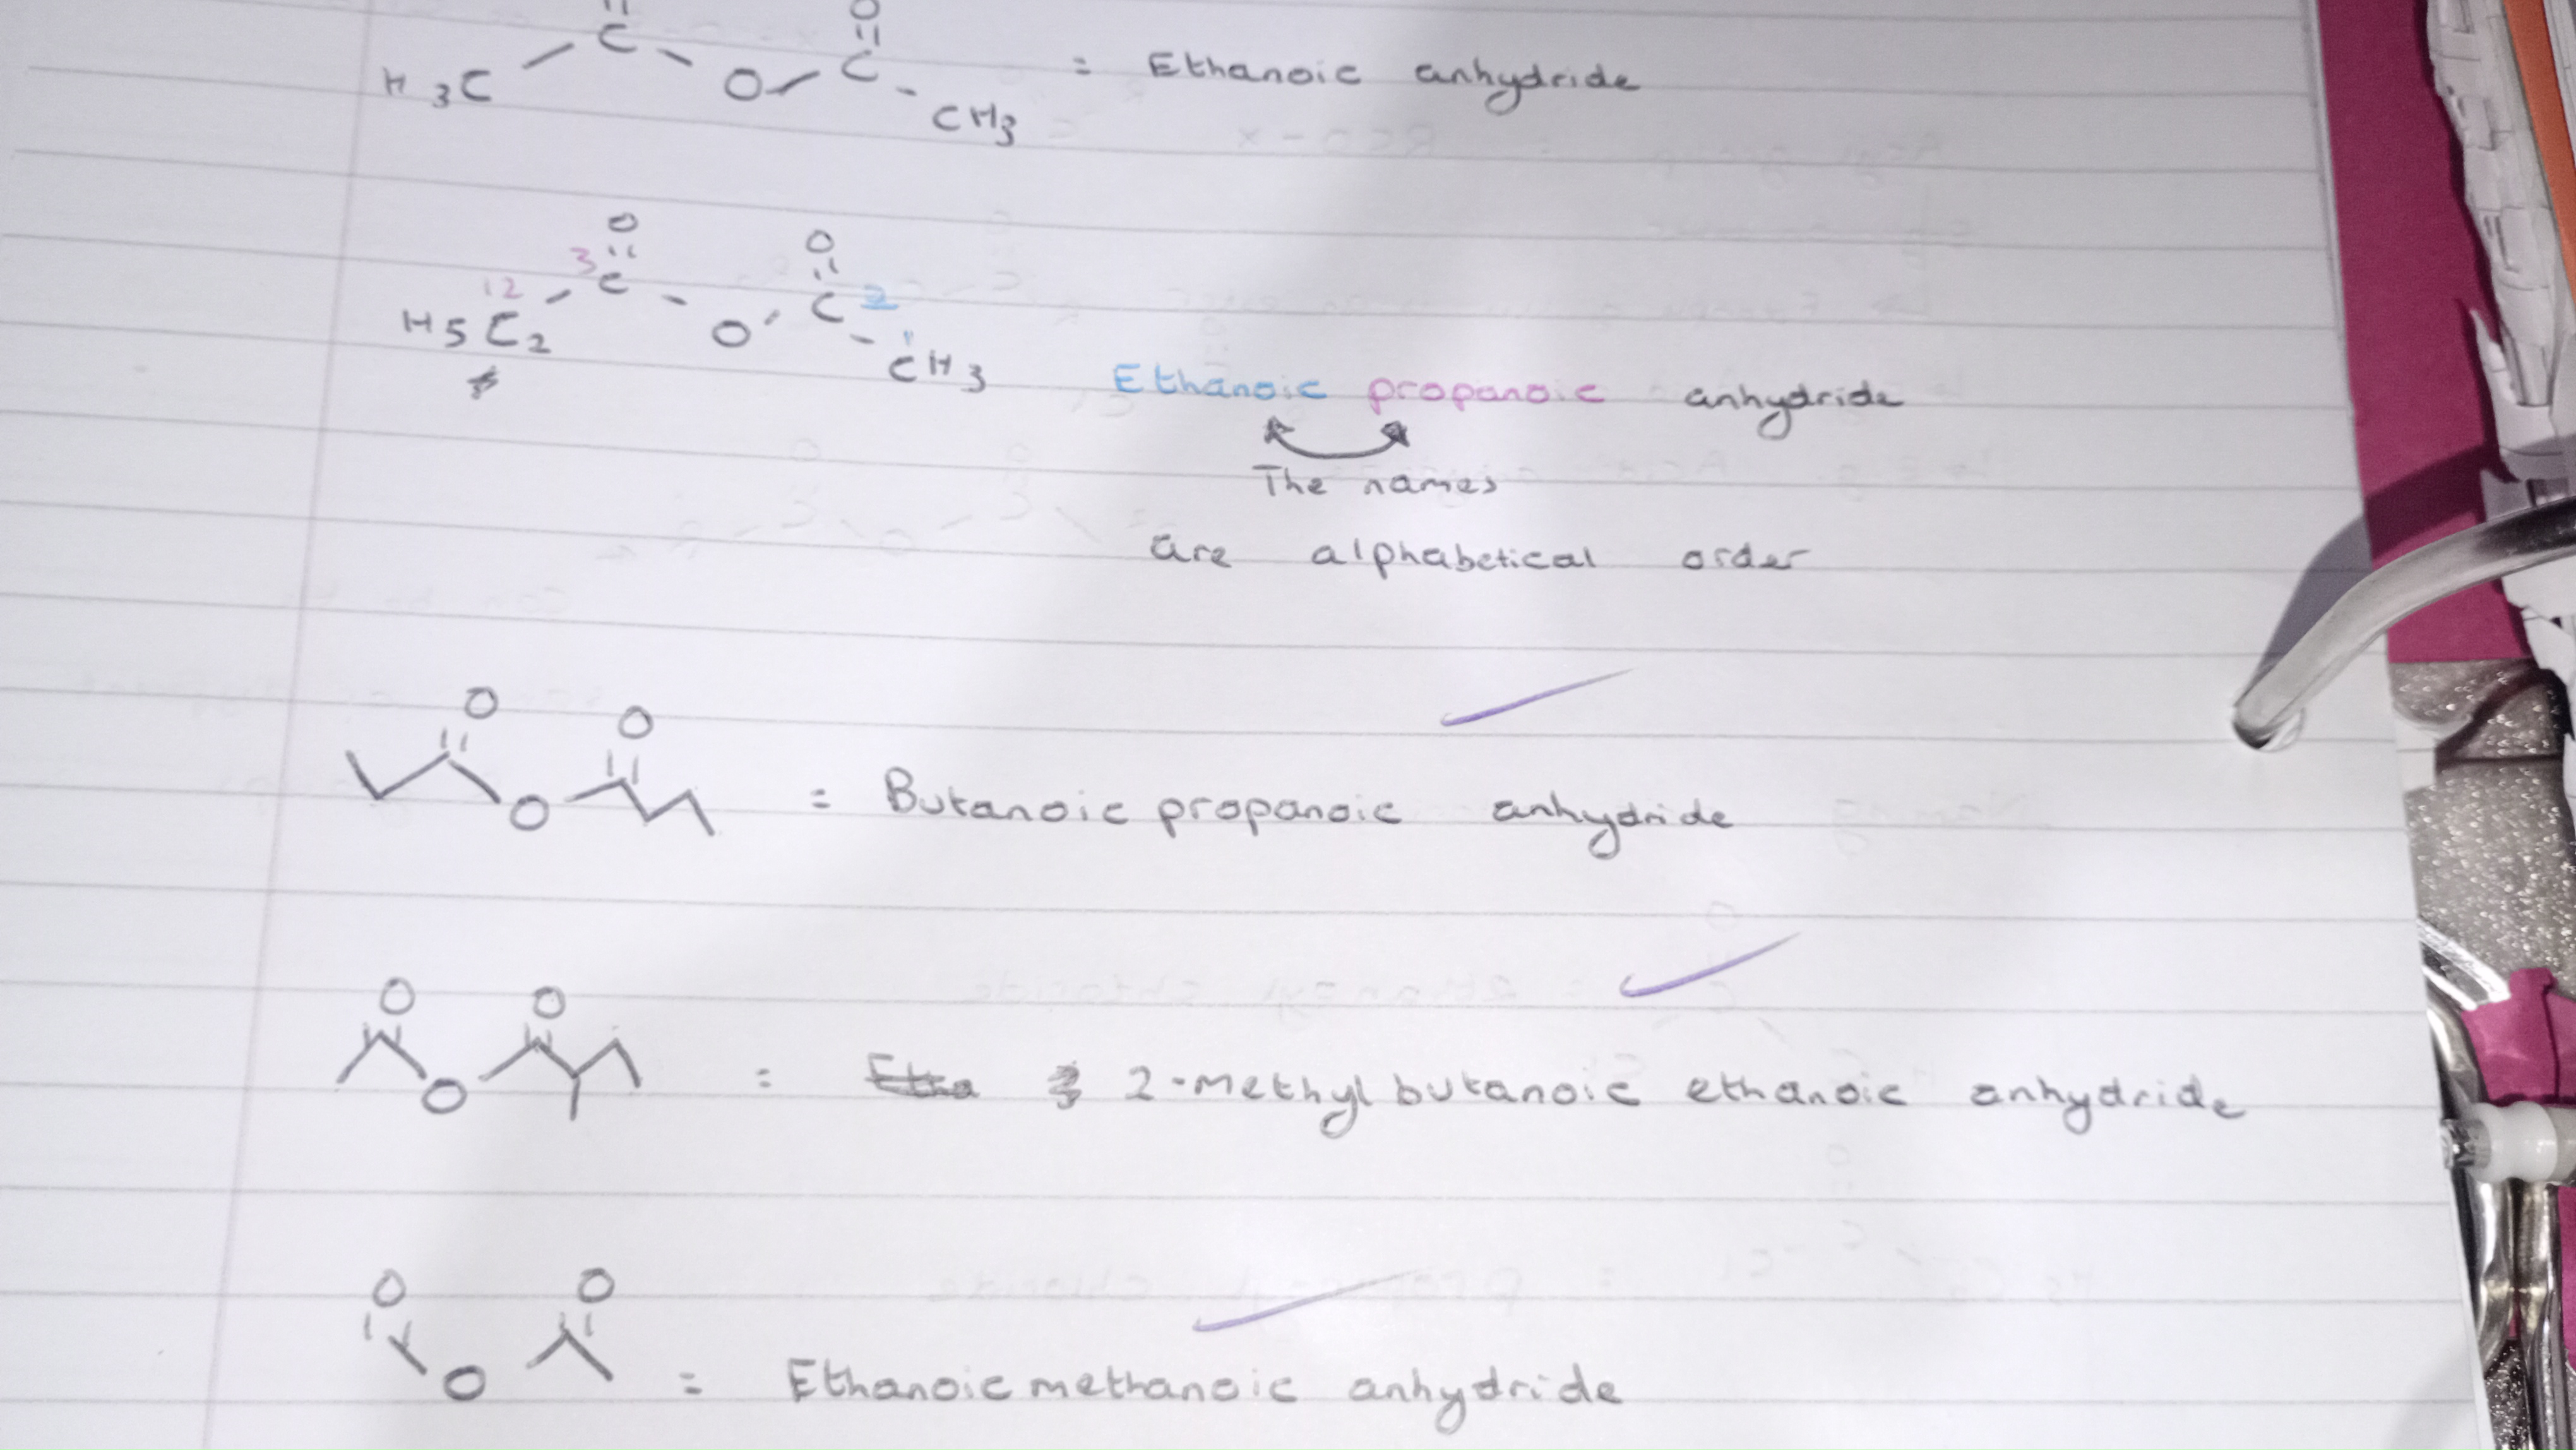 O
H3C C O C CH3 = Ethanoic anhydride
O O
12 3 2
H5C2 C O C 1 CH3 Ethanoic propanoic anhydride
The names
are alphabetical order
O O
O = Butanoic propanoic anhydride
O O
O = 2-methylbutanoic ethanoic anhydride
O O
O = Ethanoic methanoic anhydride